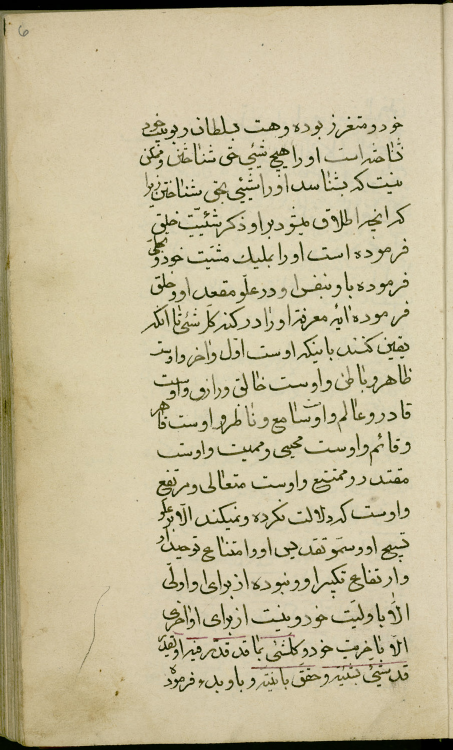 خود و متعزز بوده و هست بسلطان ربوبیت خود
نشناخته است او را هیچ شیئی حق شناختن و ممکن
نیست که بشناسد او را شیئی بحق شناختن زیرا
که آنچه اطلاق میشود بر او ذکر شیئیت خلق
فرموده است او را بملیک مشیت خود و تجلی
فرموده باو بنفس او در علو مقعد او و خلق
فرموده آیه معرفة او را در کنه کل شیئی تا آنکه
یقین کنند باینکه اوست اول و آخر و اوست
ظاهر و باطن و اوست خالق و رازق و اوست
قادر و عالم و اوست سامع و ناظر و اوست قاهر
و قائم و اوست محیی و ممیت و اوست
مقتدر و ممتنع و اوست متعالی و مرتفع
و اوست که دلالت نکرده و نمیکند الا بر علو
تسبیح او و سمو تقدیس او و امتناع توحید او
و ارتفاع تکبیر او و نبوده از برای او اولی
الا باولیت خود و نیست از برای او آخری
الا بآخریت خود و کلشئی بما قد قدر فیه او یقدر
قد شیئی بشیئیته و حقق بانیته و باو بدء فرموده
۶